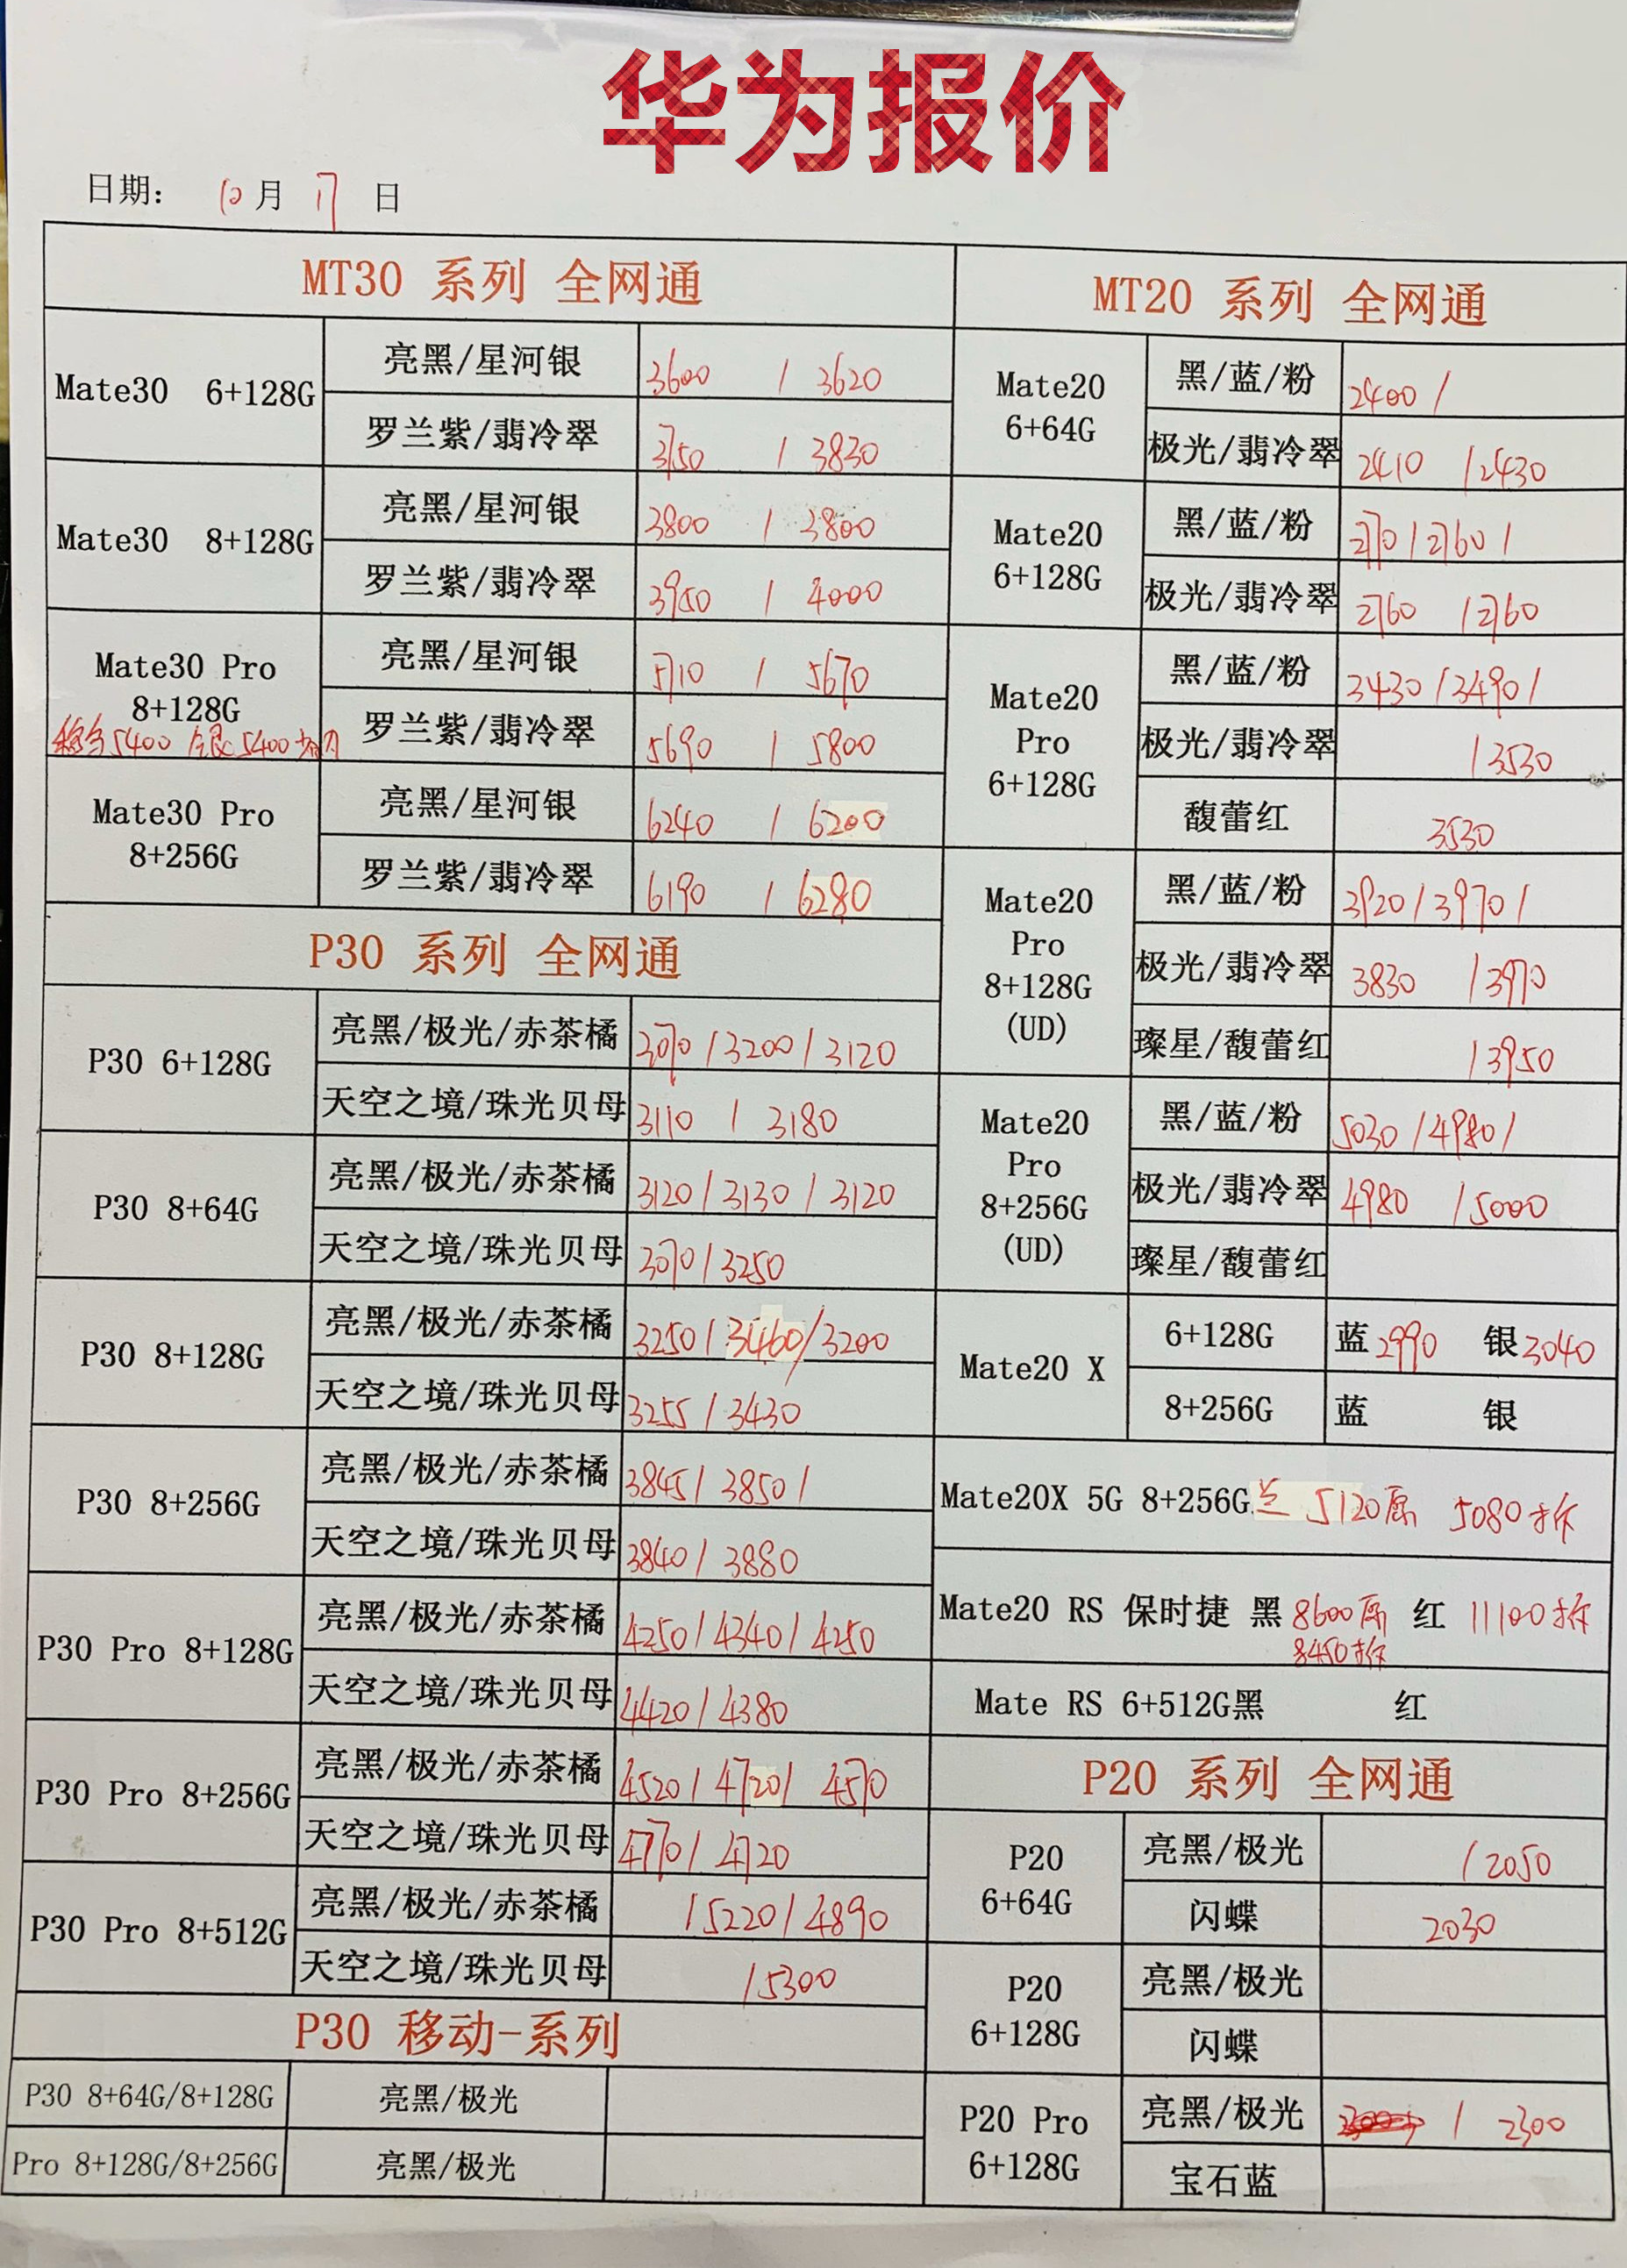 华为报价
日期： 10月 17 日
MT30 系列 全网通
Mate30 6+128G
亮黑/星河银 3600 / 3620
罗兰紫/翡冷翠 3750 / 3830
Mate30 8+128G
亮黑/星河银 3800 / 3800
罗兰紫/翡冷翠 3950 / 4000
Mate30 Pro
8+128G
5400 银5400
亮黑/星河银 5710 / 5670
罗兰紫/翡冷翠 5690 / 5800
Mate30 Pro
8+256G
亮黑/星河银 6240 / 6200
罗兰紫/翡冷翠 6190 / 6280
P30 系列 全网通
P30 6+128G
亮黑/极光/赤茶橘 3070 / 3200 / 3120
天空之境/珠光贝母 3110 / 3180
P30 8+64G
亮黑/极光/赤茶橘 3120 / 3130 / 3120
天空之境/珠光贝母 3070 / 3250
P30 8+128G
亮黑/极光/赤茶橘 3250 / 3460 / 3200
天空之境/珠光贝母 3255 / 3430
P30 8+256G
亮黑/极光/赤茶橘 3845 / 3850 /
天空之境/珠光贝母 3840 / 3880
P30 Pro 8+128G
亮黑/极光/赤茶橘 4250 / 4340 / 4250
天空之境/珠光贝母 4420 / 4380
P30 Pro 8+256G
亮黑/极光/赤茶橘 4520 / 4720 / 4570
天空之境/珠光贝母 4770 / 4720
P30 Pro 8+512G
亮黑/极光/赤茶橘 / 5220 / 4890
天空之境/珠光贝母 / 5300
P30 移动-系列
P30 8+64G/8+128G 亮黑/极光
Pro 8+128G/8+256G 亮黑/极光
MT20 系列 全网通
Mate20
6+64G
黑/蓝/粉 2400 /
极光/翡冷翠 2410 / 2430
Mate20
6+128G
黑/蓝/粉 2770 / 2760 /
极光/翡冷翠 2760 / 2760
Mate20
Pro
6+128G
黑/蓝/粉 3430 / 3490 /
极光/翡冷翠 / 3530
馥蕾红 3530
Mate20
Pro
8+128G
(UD)
黑/蓝/粉 3920 / 3970 /
极光/翡冷翠 3830 / 3970
璨星/馥蕾红 / 3950
Mate20
Pro
8+256G
(UD)
黑/蓝/粉 5030 / 4980 /
极光/翡冷翠 4980 / 5000
璨星/馥蕾红
Mate20 X
6+128G 蓝2990 银3040
8+256G 蓝 银
Mate20X 5G 8+256G 兰 5120原 5080拆
Mate20 RS 保时捷 黑 8600原 红 11100拆
8450拆
Mate RS 6+512G黑 红
P20 系列 全网通
P20
6+64G
亮黑/极光 / 2050
闪蝶 2030
P20
6+128G
亮黑/极光
闪蝶
P20 Pro
6+128G
亮黑/极光 / 2300
宝石蓝